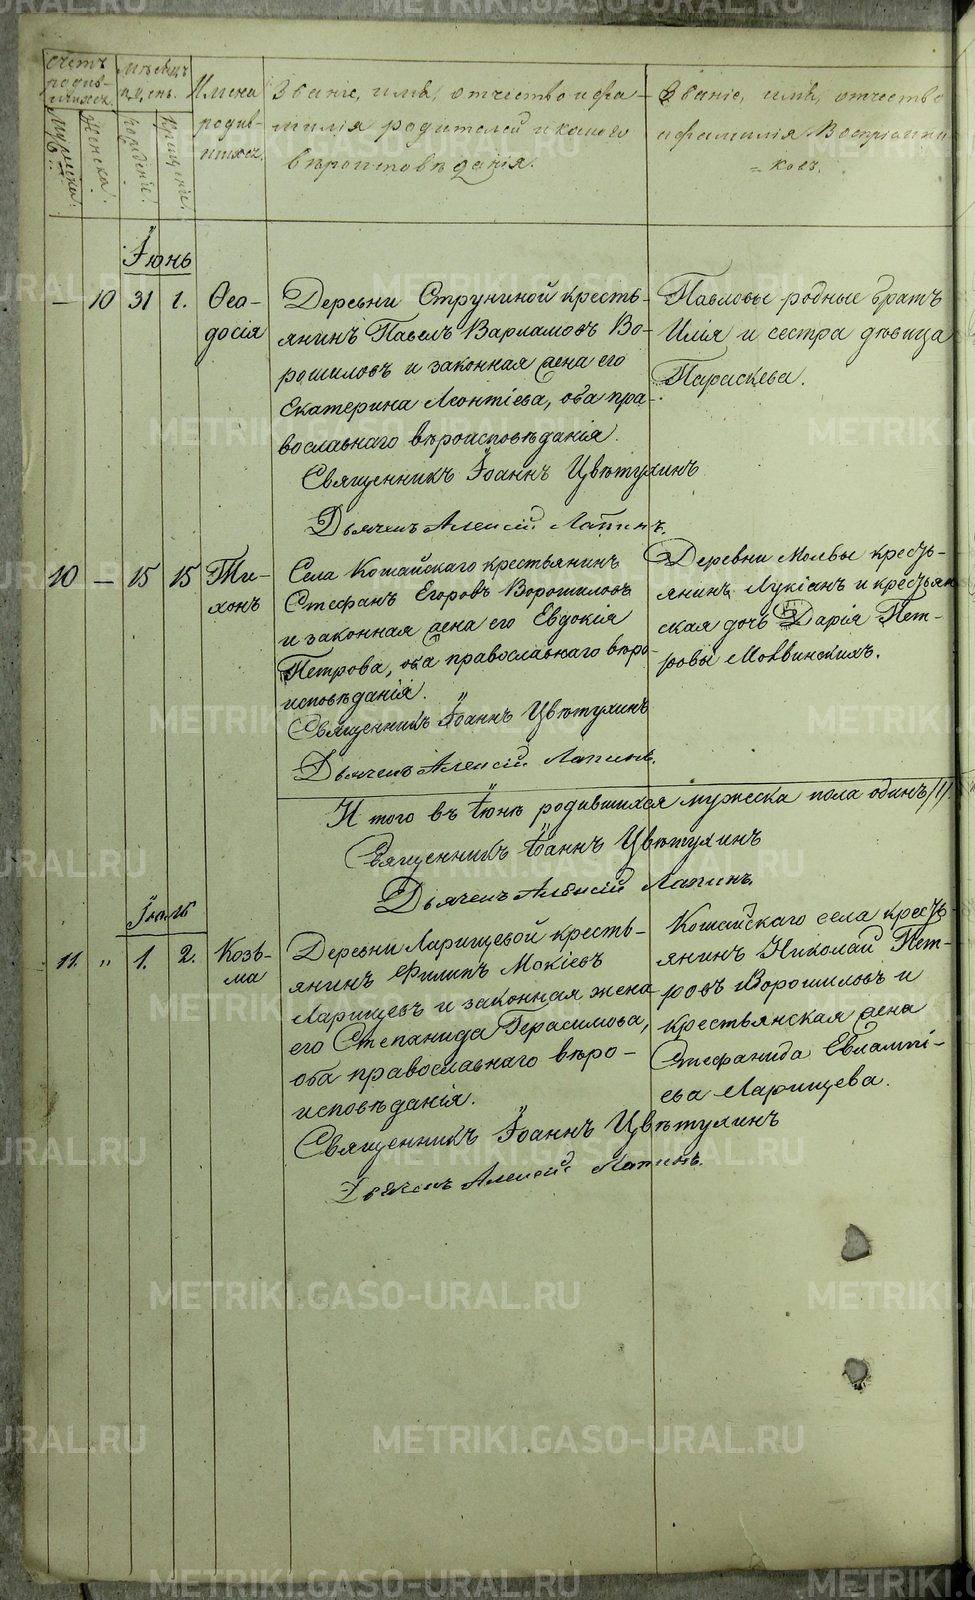 Счетъ родив-шихся.
Мужеска.
Женска.
Мѣсяцъ и день.
рожденіе.
крещеніе.
Имена
родив-
шихся.
Званіе, имя, отчество и фа-
милія родителей и какого
вѣроисповѣданія.
Званіе, имя, отчество
и фамилія Воспріемни
=ковъ.
Іюнь
— 10 31 1. Ѳео-
досія
Деревни Струниной кресть-
янинъ Павелъ Варламовъ Во-
рошиловъ и законная жена его
Екатерина Леонтіева, оба пра-
вославнаго вѣроисповѣданія.
Священникъ Іоаннъ Цвѣтухинъ
Дьячекъ Алексій Лапинъ.
Павловы родные братъ
Илія и сестра дѣвица
Параскева.
10 — 15 15 Ти-
хонъ
Села Кошайскаго крестьянинъ
Стефанъ Егоровъ Ворошиловъ
и законная жена его Евдокія
Петрова, оба православнаго вѣро-
исповѣданія.
Священникъ Іоаннъ Цвѣтухинъ
Дьячекъ Алексій Лапинъ.
Деревни Молвы кресть-
янинъ Лукіанъ и крестьян
ская дочь Дарія Пет-
ровы Молвинскихъ.
И того въ Іюнѣ родившихся мужеска пола одинъ /1/.
Священникъ Іоаннъ Цвѣтухинъ
Дьячекъ Алексій Лапинъ.
Іюль
11. " 1. 2. Козь-
ма
Деревни Ларищевой кресть-
янинъ Филипъ Мокіевъ
Ларищевъ и законная жена
его Степанида Герасимова,
оба православнаго вѣро-
исповѣданія.
Священникъ Іоаннъ Цвѣтухинъ
Дьячекъ Алексій Лапинъ.
Кошайскаго села кресть-
янинъ Николай Пет-
ровъ Ворошиловъ и
крестьянская жена
Стефанида Евлампі-
ева Ларищева.
METRIKI.GASO-URAL.RU